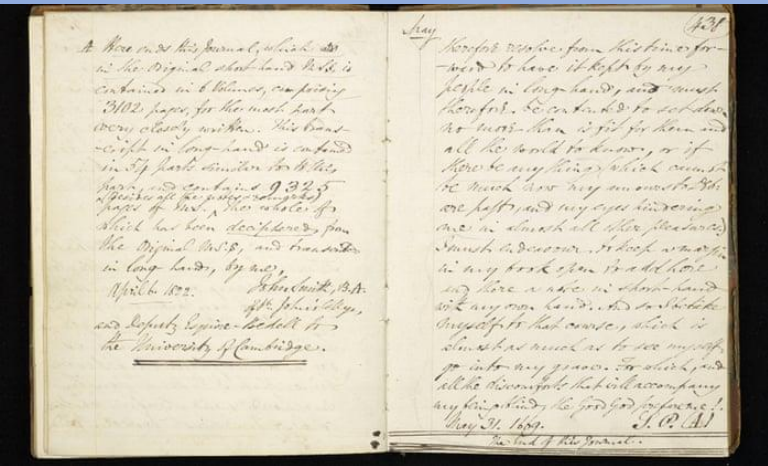 A Here ends this Journal, which is
in the Original short-hand M.S. is
contained in 6 Volumes, comprising
3102 pages, for the most part
very closely written. This trans-
-cript in long-hand is contained
in 54 parts similar to this
part, and contains 9325
(besides all the
pages of M.S. The whole of
which has been deciphered from
the Original M.S.S, and transcribed
in long hand, by me,
April 6. 1822. John Smith, B.A.
of St. John's College,
and Deputy Esquire-Bedell to
the University of Cambridge.
May
438
therefore resolve from this time for-
-ward to have it kept by my
people in long-hand, and must
therefore be contented to set down
no more than is fit for them and
all the world to know, or if
there be anything (which cannot
be much now my amours to Deb
are past, and my eyes hindering
me in almost all other pleasures)
I must endeavour to keep a margin
in my book open to add here
and there a note in short-hand
with my own hand. And so I betake
myself to that course, which is
almost as much as to see myself
go into my grave. For which, and
all the discomforts that will accompany
my being blind, the good God prepare me!
May 31. 1669. S. P. (A)
The End of this Journal.